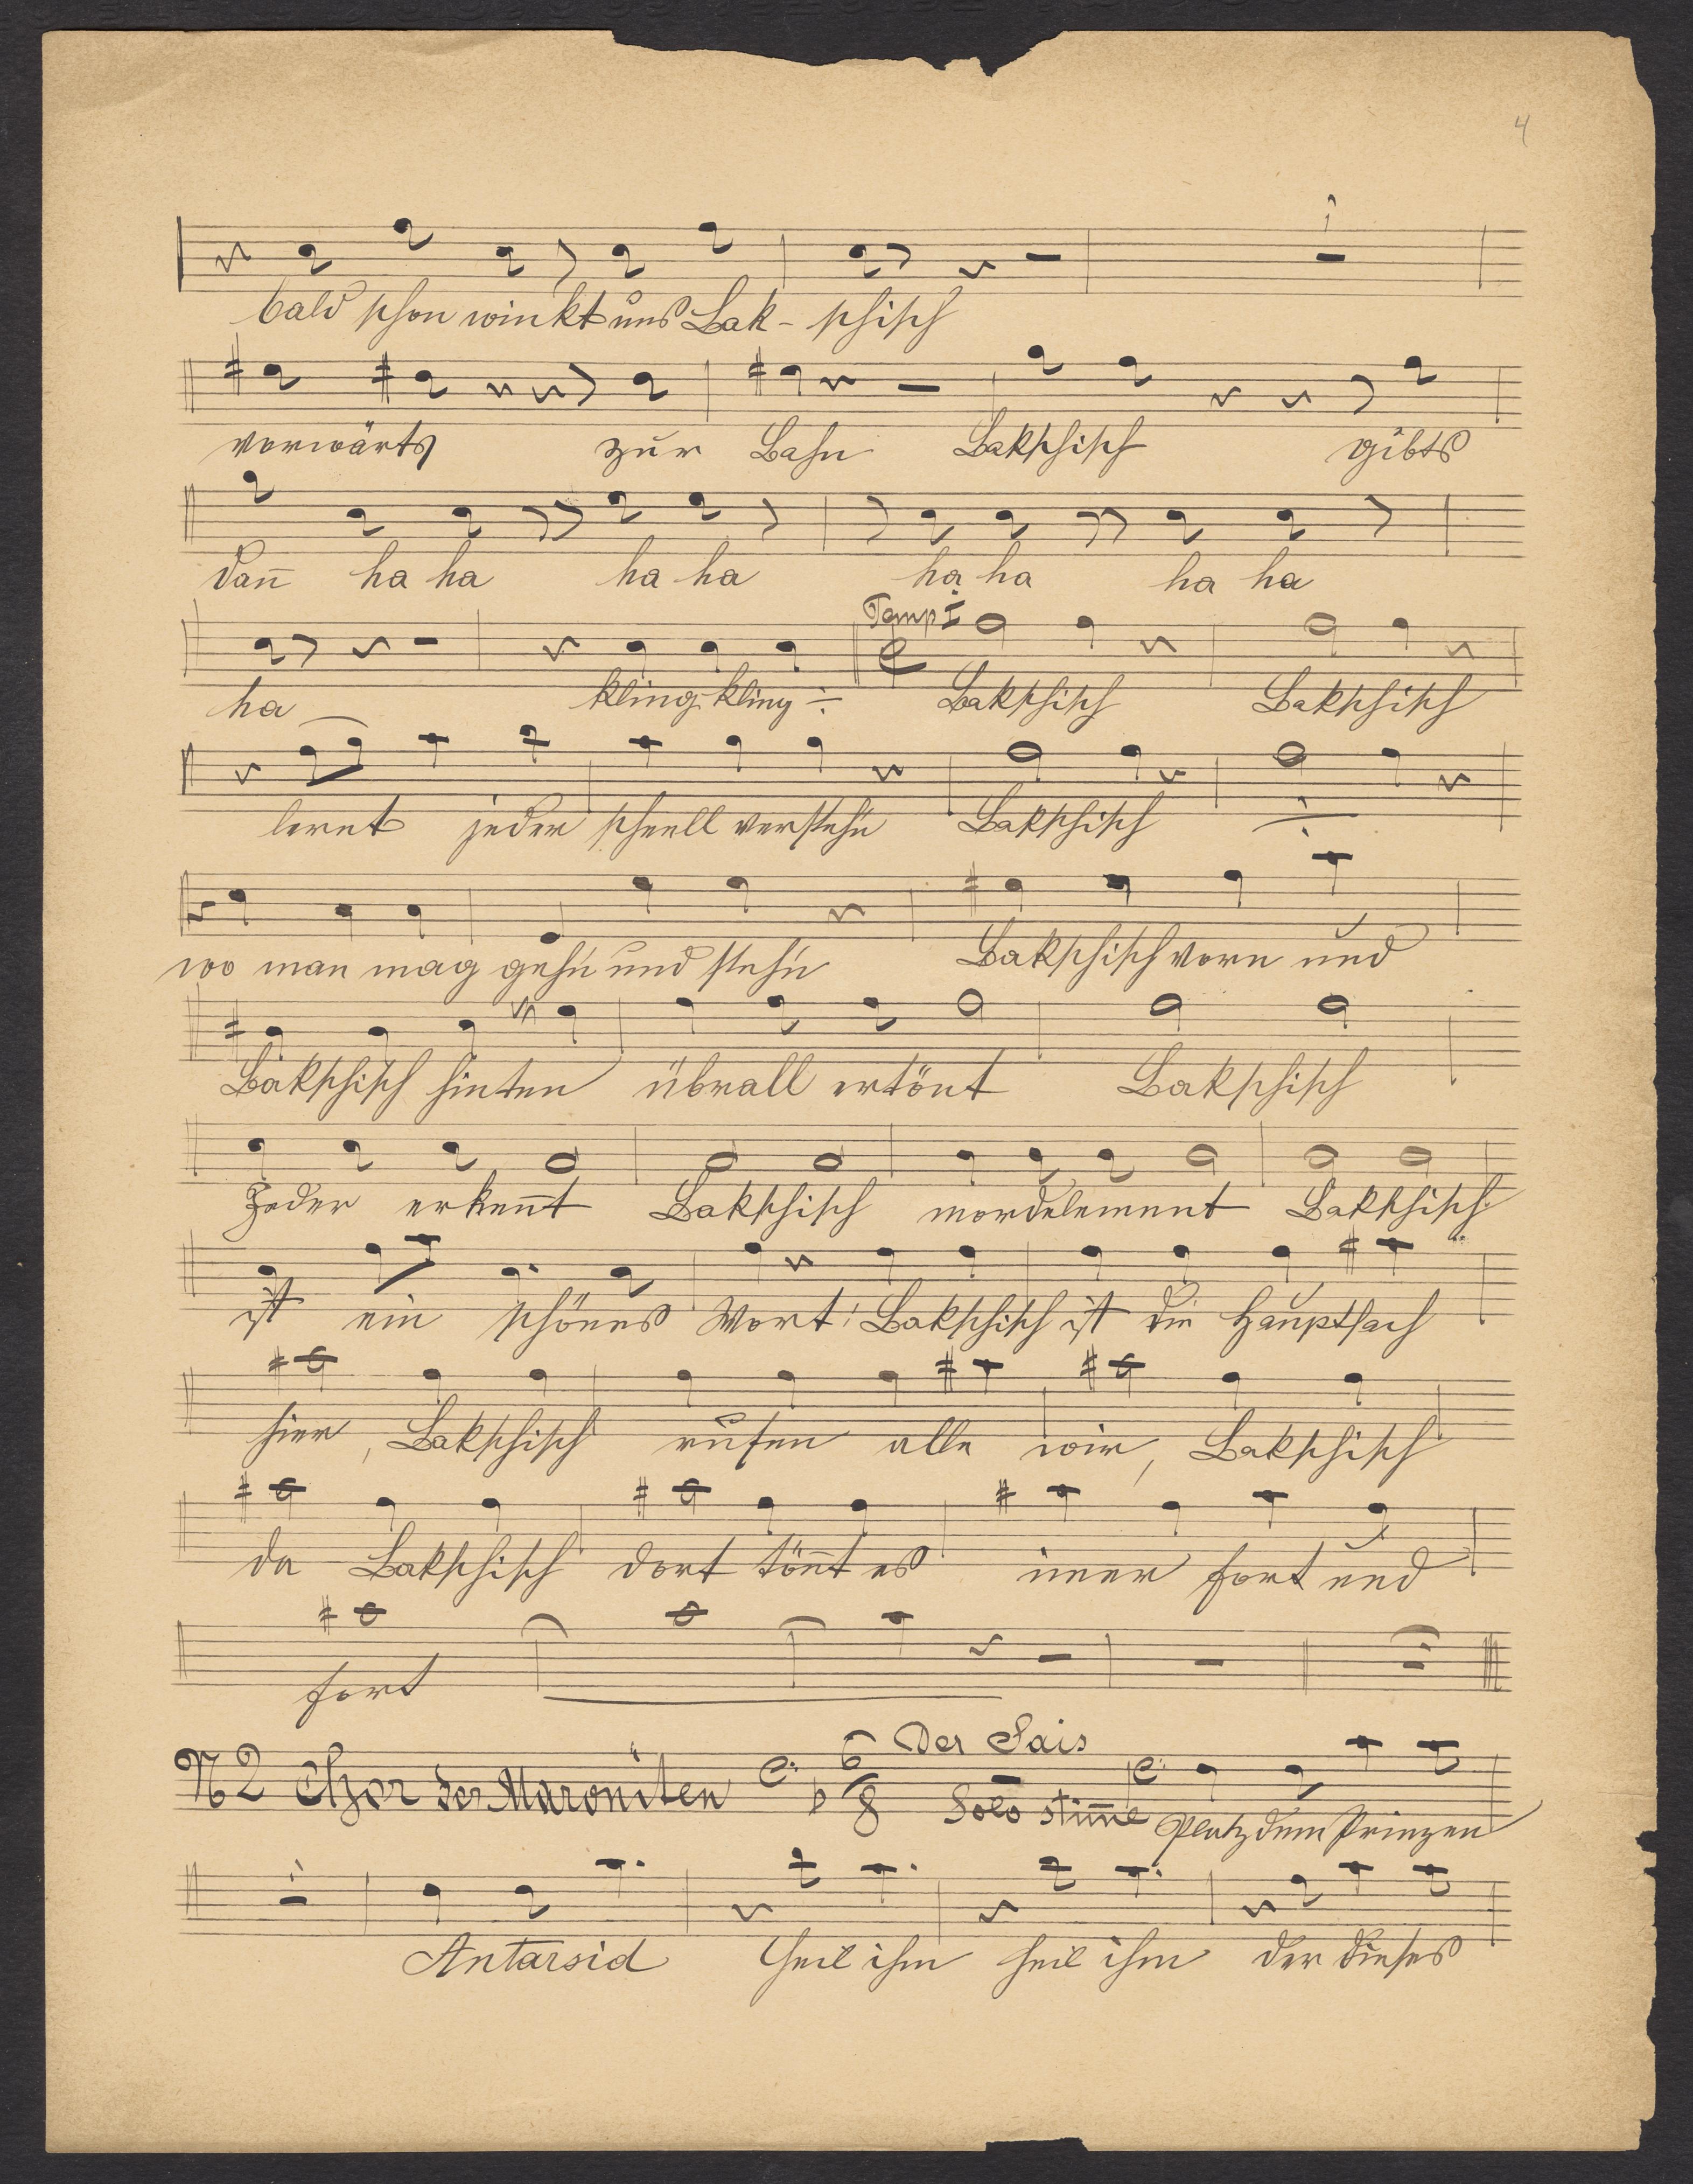 4
bald schon winkt uns Bak- schisch
vorwärts zur Bahn Bakschisch gibts
dan̄ ha ha ha ha ha ha ha ha
Temp I
ha kling kling ÷ Bakschisch Bakschisch
lernt jeder schnell versteh'n Bakschisch ÷
wo man mag geh'n und steh'n Bakschisch vorn und
Bakschisch hinten übrall ertönt Bakschisch
Jeder erken̄t Bakschisch mordelement Bakschisch
ist ein schönes Wort: Bakschisch ist die Hauptsach
hier, Bakschisch rufen alle wir, Bakschisch
da Bakschisch dort tön̄t es im̄er fort und
fort
Der Sais
N 2 Chor der Maroniten 6/8 Solo stim̄e
Platz dem Prinzen
Antarsid Heil ihm heil ihm der dieses